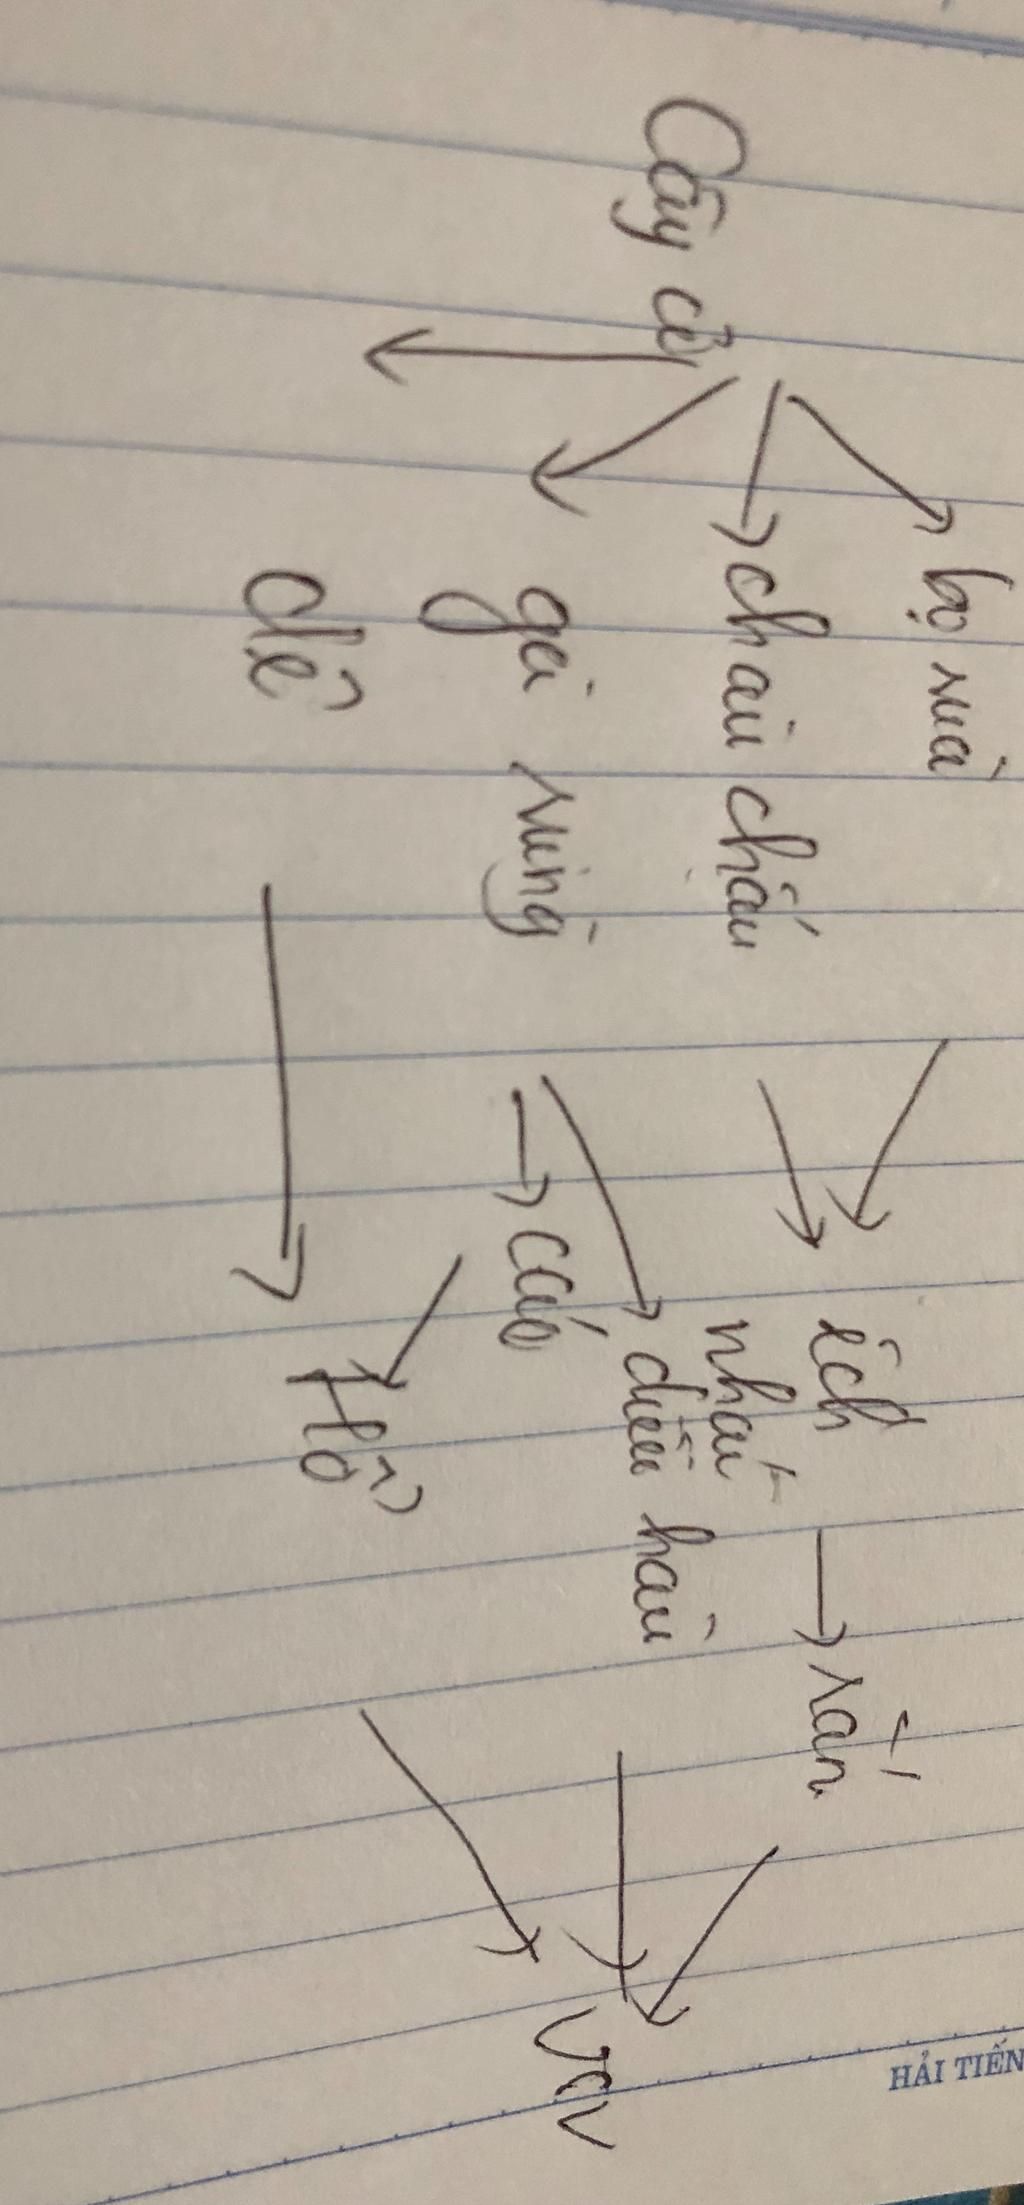 bọ rùa
Cây cỏ
châu chấu
ếch
rắn
nhái
gà rừng
diều hâu
VSV
cáo
dê
Hổ
HẢI TIẾN